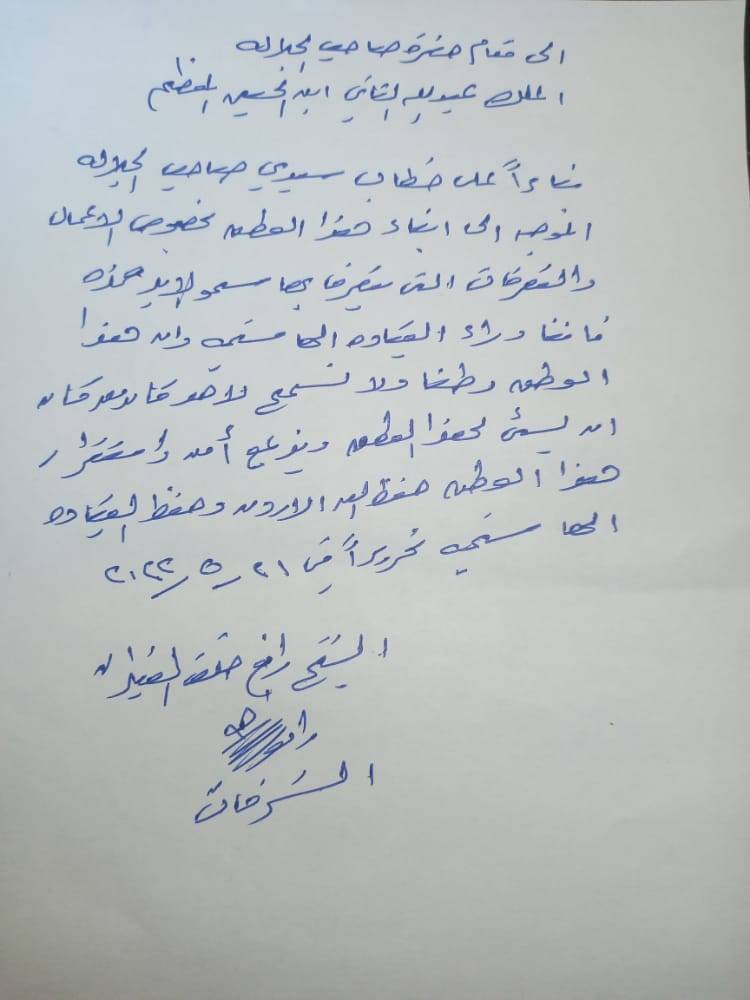 الى مقام حضرة صاحب الجلاله
الملك عبدالله الثاني ابن الحسين المعظم
بناءاً على خطاب سيدي صاحب الجلاله
الموجه الى ابناء هذا الوطن بخصوص الاعمال
والتصرفات التي يتصرف بها سمو الامير حمزه
فاننا وراء القياده الهاشميه وان هذا
الوطن وطننا ولا نسمح لاحد كان من كان
ان يسئ لهذا الوطن ويزعزع أمن وأستقرار
هذا الوطن حفظ الله الاردن وحفظ القياده
الهاشميه تحريراً في ٢١/٥/٢٠٢٢
الشيخ رافع خلف
السرحان